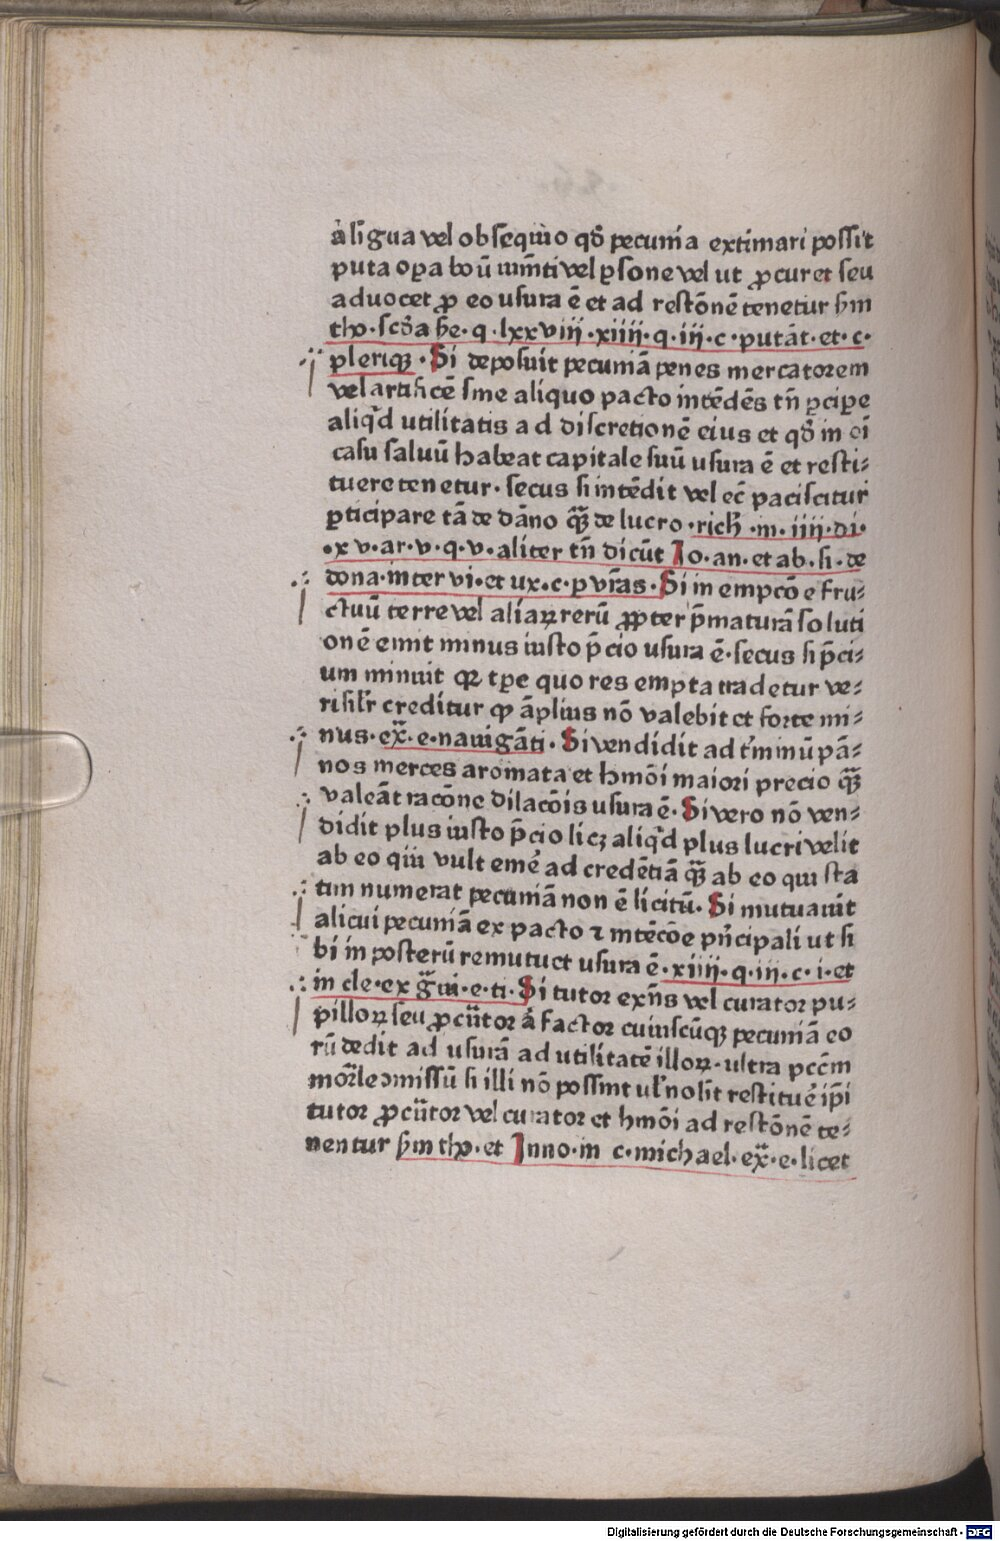 a ligua vel obsequio qđ pecunia extimari possit
puta oꝑa boū iumēti vel ꝑsone vel ut ꝓcuret seu
aduocet ꝓ eo usura ē et ad restōnē tenetur ẜm
tho·scđa ẜe·q·lxxviij·xiiij·q·iij·c·putāt·et·c·
plerique·Si deposuit pecuniā penes mercatorem
vel artificē sine aliquo pacto intēdēs tn̄ ꝑciꝑe
aliqđ utilitatis ad discretionē eius et qđ in oī
casu saluū habeat capitale suū usura ē et resti⸗
tuere tenetur·secus si intēdit vel ec̄ paciscitur
ꝑticipare tā de dāno qꝫ̄ de lucro·rich̄·in·iiij·di·
·xv·ar·v·q·v·aliter tn̄ dicūt Io·an·et ab·si·de
dona·inter vi·et ux·c·ꝑ vr̄as·Si in empcōe fru⸗
ctuū terre vel aliaꝝ rerū ꝓpter p̄maturā soluti
onē emit minus iusto p̄cio usura ē·secus si p̄ci⸗
um minuit qꝛ tꝑe quo res empta tradetur ve⸗
risil'r creditur ꝙ āplius nō valebit et forte mi⸗
nus·ex̄·e·nauigāti·Si vendidit ad t'minū pā⸗
nos merces aromata et hmōi maiori precio qꝫ̄
valeāt racōne dilacōis usura ē·Si vero nō ven⸗
didit plus iusto p̄cio licꝫ aliqđ plus lucri velit
ab eo qui vult eme' ad credētiā qꝫ̄ ab eo qui sta
tim numerat pecuniā non ē licitū·Si mutuauit
alicui pecuniā ex pacto ⁊ intēcōe pn̄cipali ut si
bi in posterū remutuet usura ē·xiiij·q·iij·c·i·et
in cle·ex gͣui·e·ti·Si tutor exn̄s vel curator pu⸗
pilloꝝ seu ꝓcūtor a' factor cuiuscūqꝫ pecuniā eo
rū dedit ad usurā ad utilitatē illoꝝ·ultra pccm̄
mor̄le ↄmissū si illi nō possint ul' nolit restitue' ip̄i
tutor ꝓcūtor vel curator et hmōi ad restōnē te⸗
nentur ẜm tho·et Inno·in c·michael·ex̄·e·licet
Digitalisierung gefördert durch die Deutsche Forschungsgemeinschaft - DFG